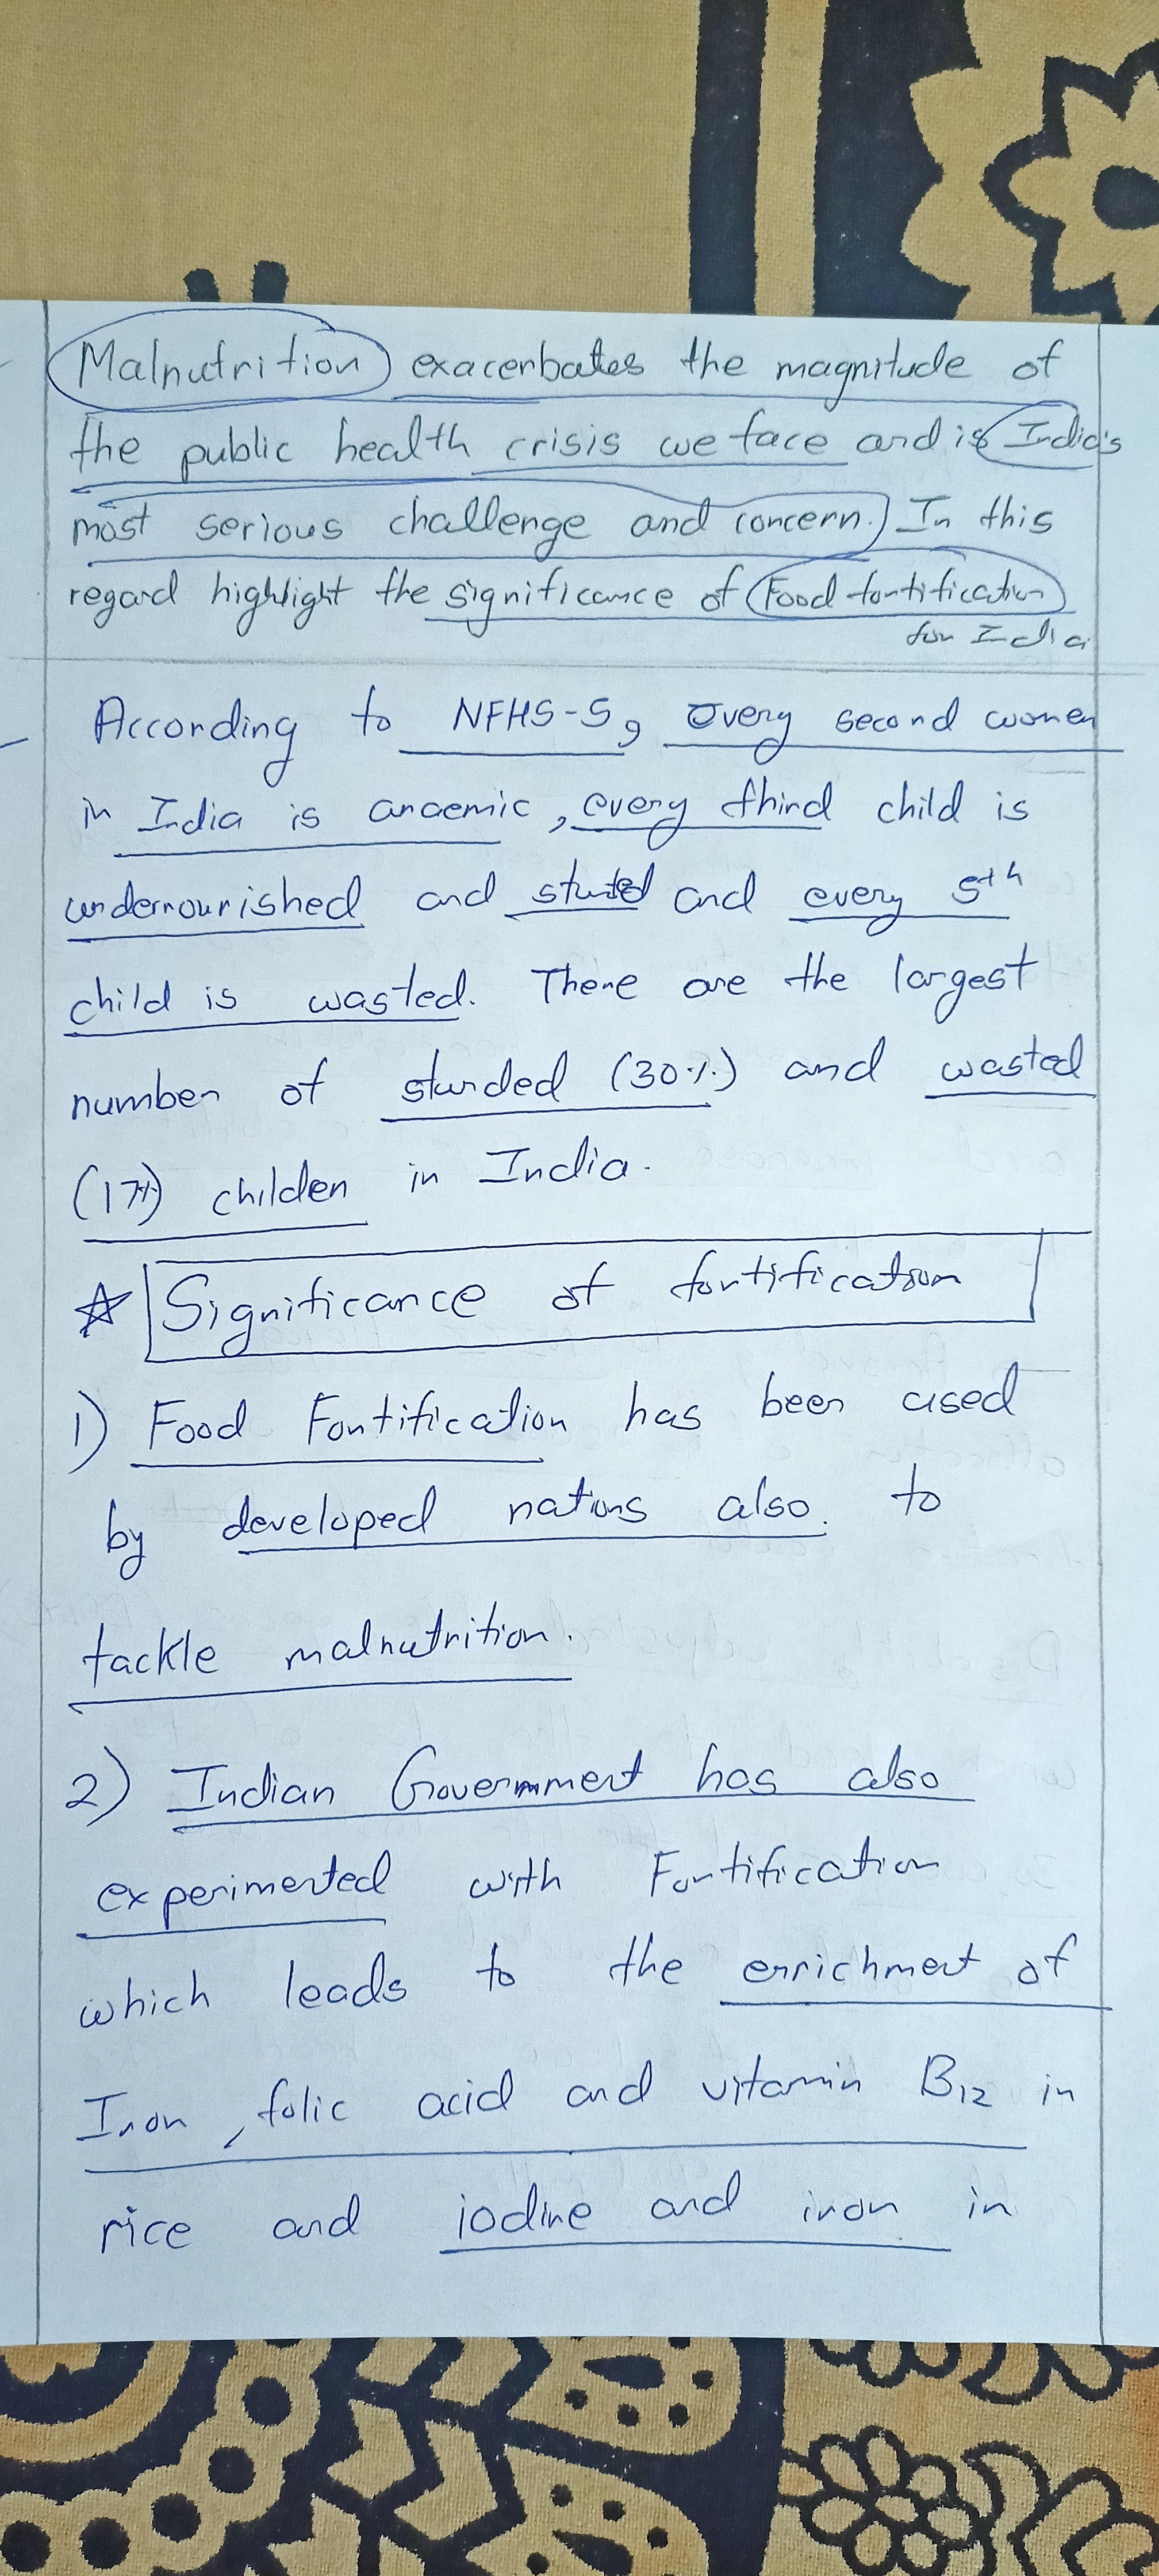 Malnutrition exacerbates the magnitude of
the public health crisis we face and is India's
most serious challenge and concern. In this
regard highlight the significance of Food fortification
for India
According to NFHS-5, every second women
in India is anaemic, every third child is
undernourished and stunted and every 5th
child is wasted. There are the largest
number of stunded (30%) and wasted
(17%) childen in India.
Significance of fortification
1) Food Fortification has been used
by developed nations also. to
tackle malnutrition.
2) Indian Government has also
experimented with Fortification
which leads to the enrichment of
Iron, folic acid and vitamin B12 in
rice and iodine and iron in